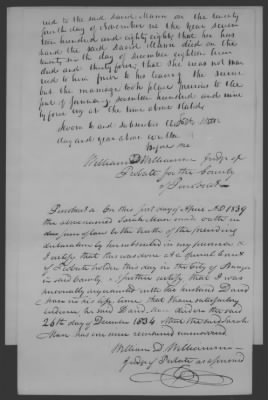 ried to the said David Mann on the twenty
fourth day of November in the year seven
teen hundred and eighty eight, that her hus
band the said David Mann died on the
twenty sixth day of December eighteen hun
dred and thirty four; that she was not mar
ried to him prior to his leaving the service
but the marriage took place previous to the
first of January, seventeen hundred and nine
ty four viz at the time above stated.
Sworn to and subscribed on the
day and year above written
before me
William D Williamson Judge of
Probate for the County
of Penobscot
Penobscot ss On this first day of April AD 1839
the above named Sarah Mann made oath in
due form of law to the truth of the preceding
declaration by her subscribed in my presence &
I certify that this was done at a special Court
of Probate holden this day in the City of Bangor
in said County. I further certify that I was
personally acquainted with her husband David
Mann in his life time, that I have satisfactory
evidence he said David Mann died on the said
26th day of December 1834 & that the said Sarah
Mann has ever since remained unmarried
William D. Williamson
Judge of Probate as aforesaid